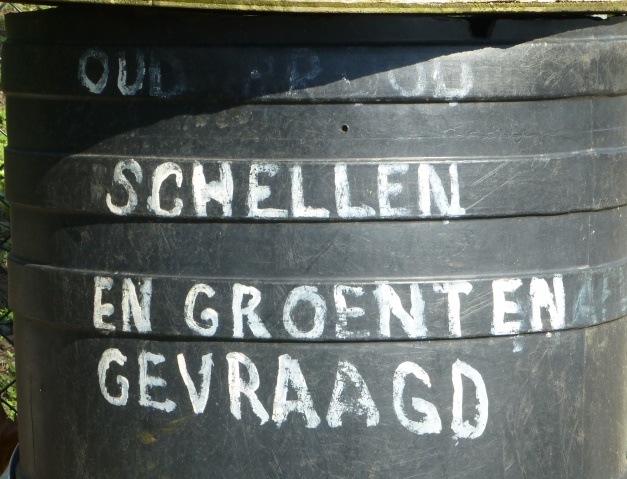 OUD BROOD
SCHELLEN
EN GROENTEN
GEVRAAGD